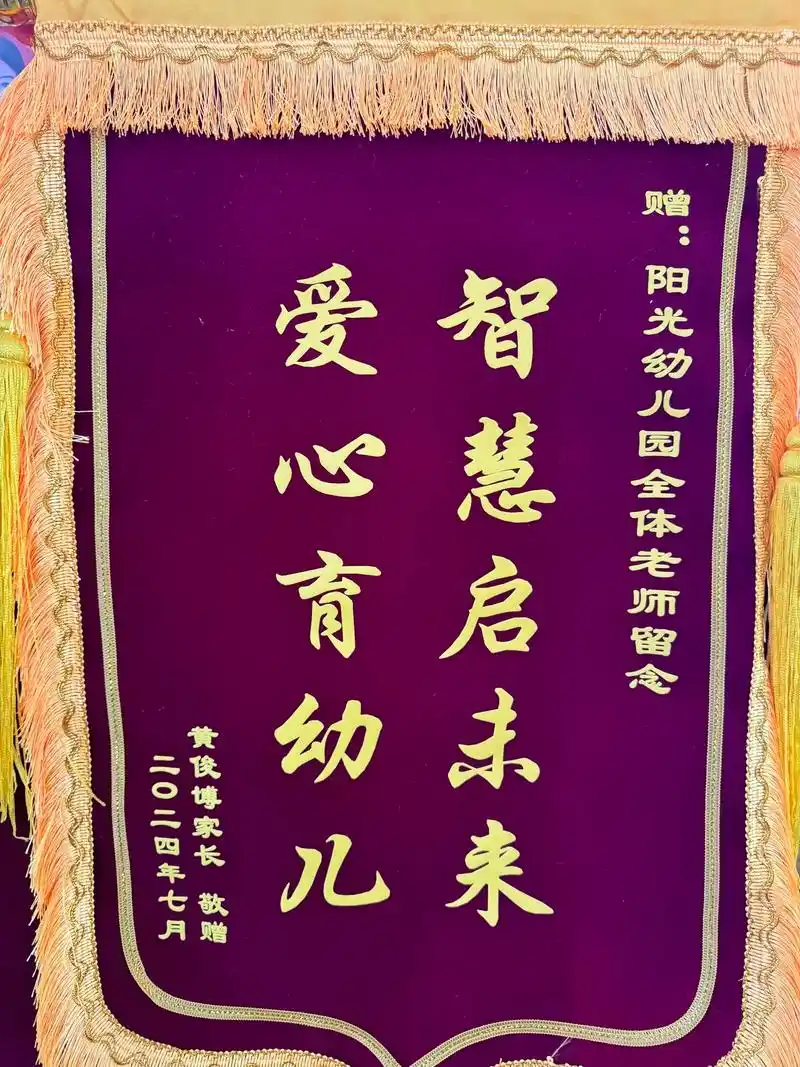 赠：阳光幼儿园全体老师留念
智慧启未来
爱心育幼儿
黄俊博家长 敬赠
二〇二四年七月